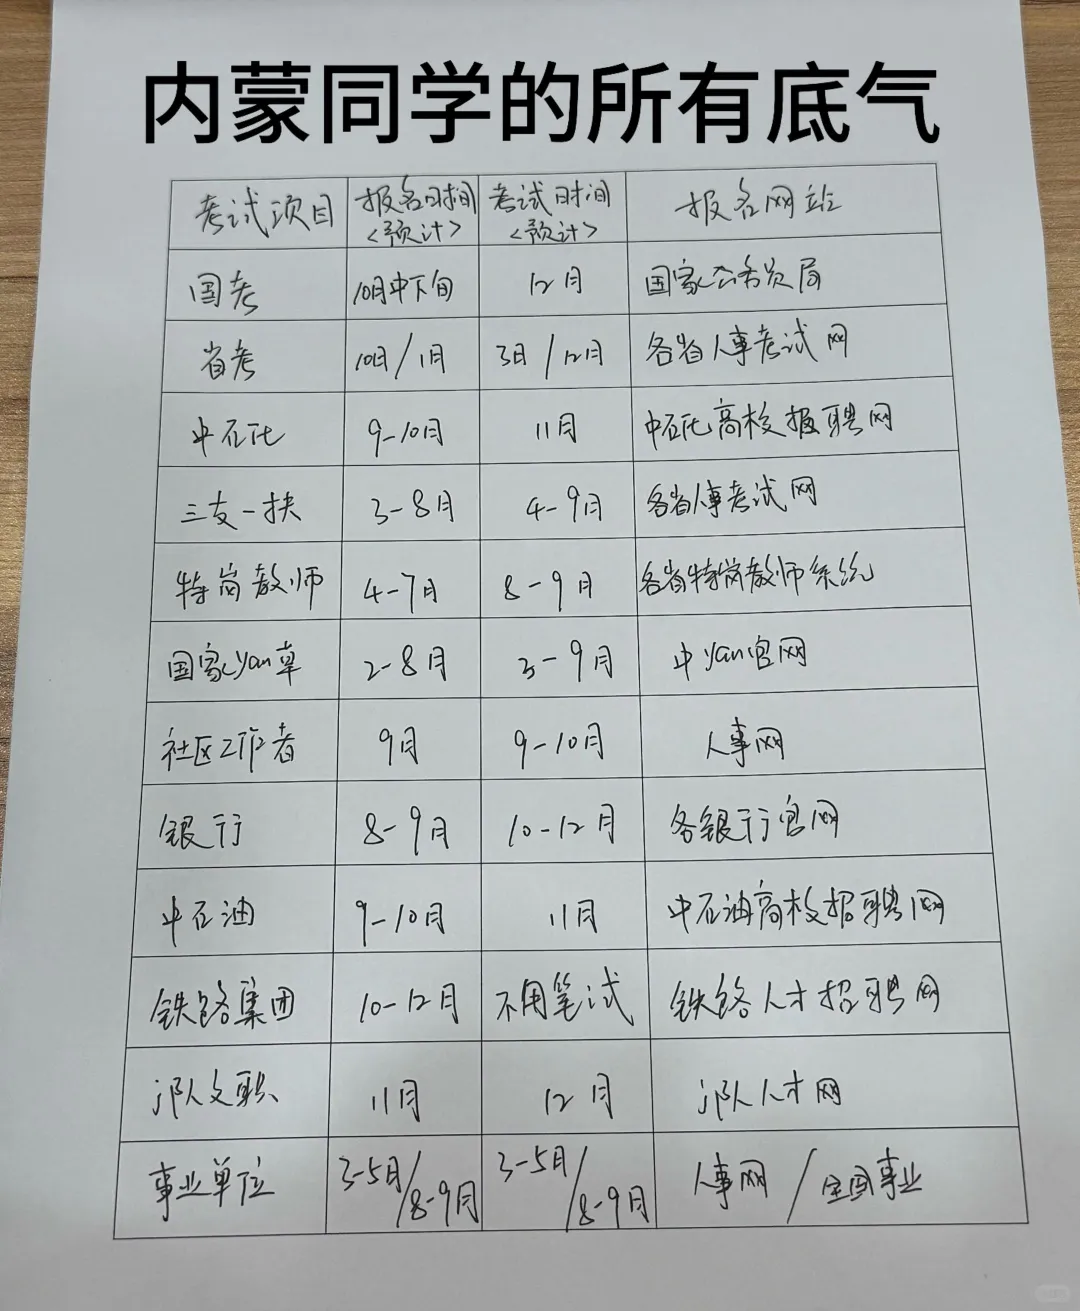 内蒙同学的所有底气
考试项目 报名时间<预计> 考试时间<预计> 报名网站
国考 10月中下旬 12月 国家公务员局
省考 10月/1月 3月/12月 各省人事考试网
中石化 9-10月 11月 中石化高校报聘网
三支一扶 3-8月 4-9月 各省人事考试网
特岗教师 4-7月 8-9月 各省特岗教师系统
国家yan草 2-8月 3-9月 中yan官网
社区工作者 9月 9-10月 人事网
银行 8-9月 10-12月 各银行官网
中石油 9-10月 11月 中石油高校招聘网
铁路集团 10-12月 不用笔试 铁路人才招聘网
j队文职 11月 12月 j队人才网
事业单位 3-5月/8-9月 3-5月/8-9月 人事网/全国事业